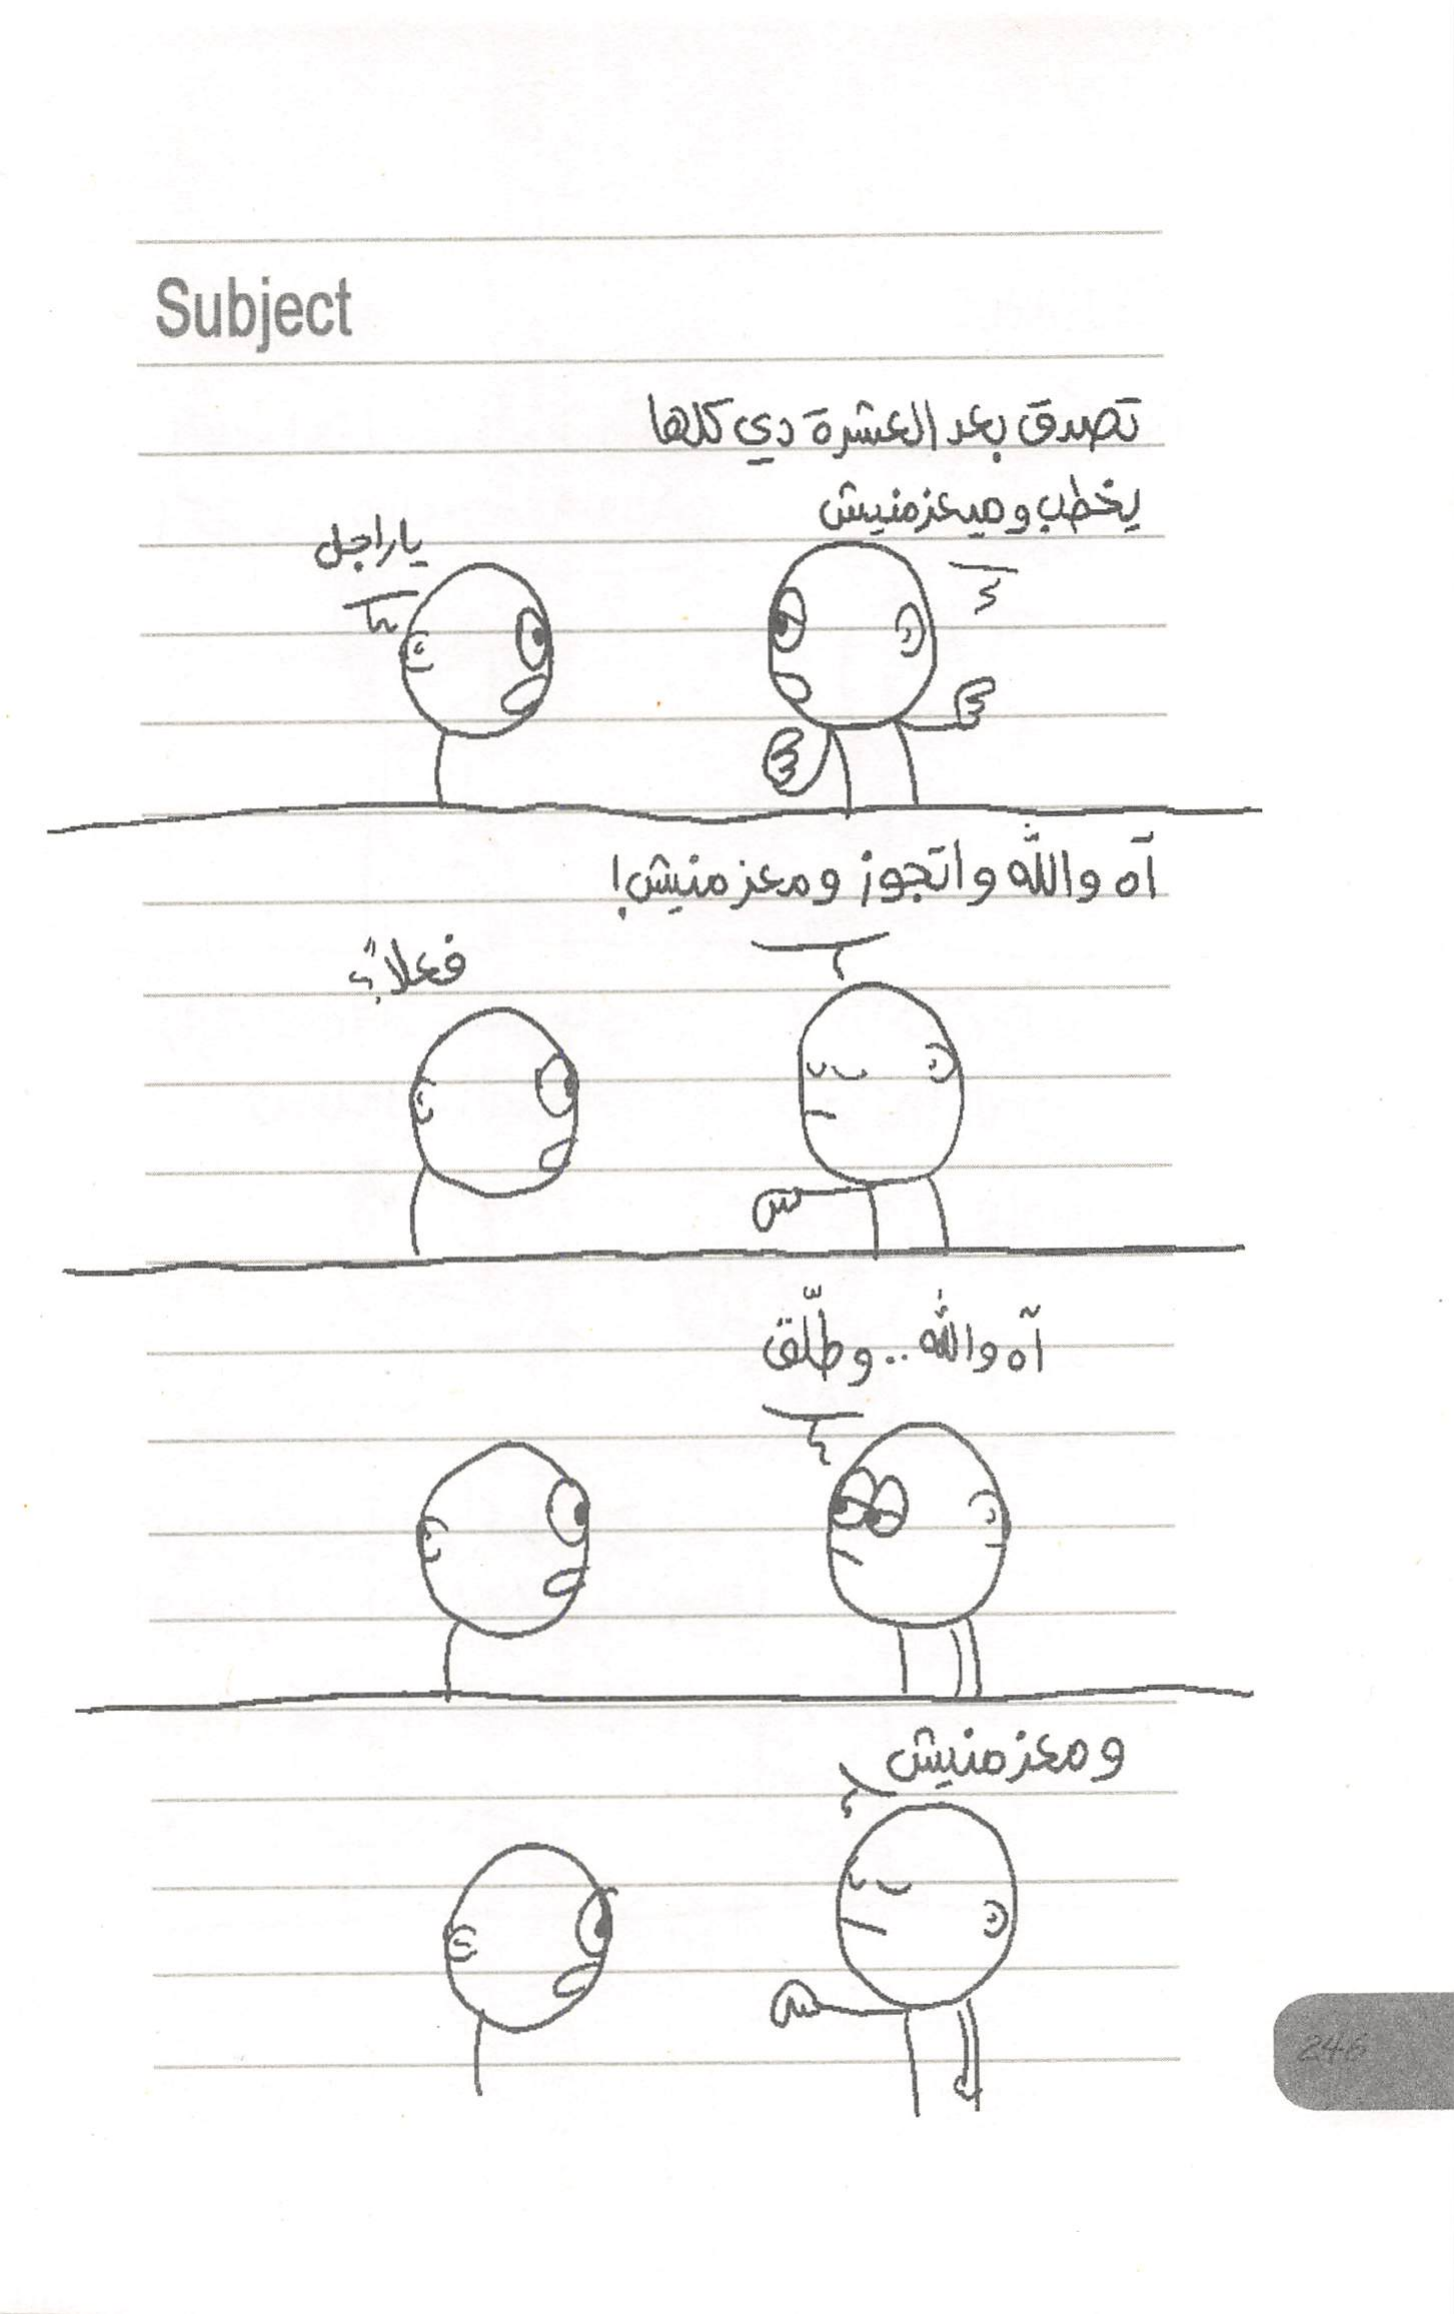 Subject
تصدق بعد العشرة دي كلها
يخطب وميعزمنيش
ياراجل
آه والله واتجوز ومعزمنيش!
فعلاً؟
آه والله.. وطلّق
ومعزمنيش
246